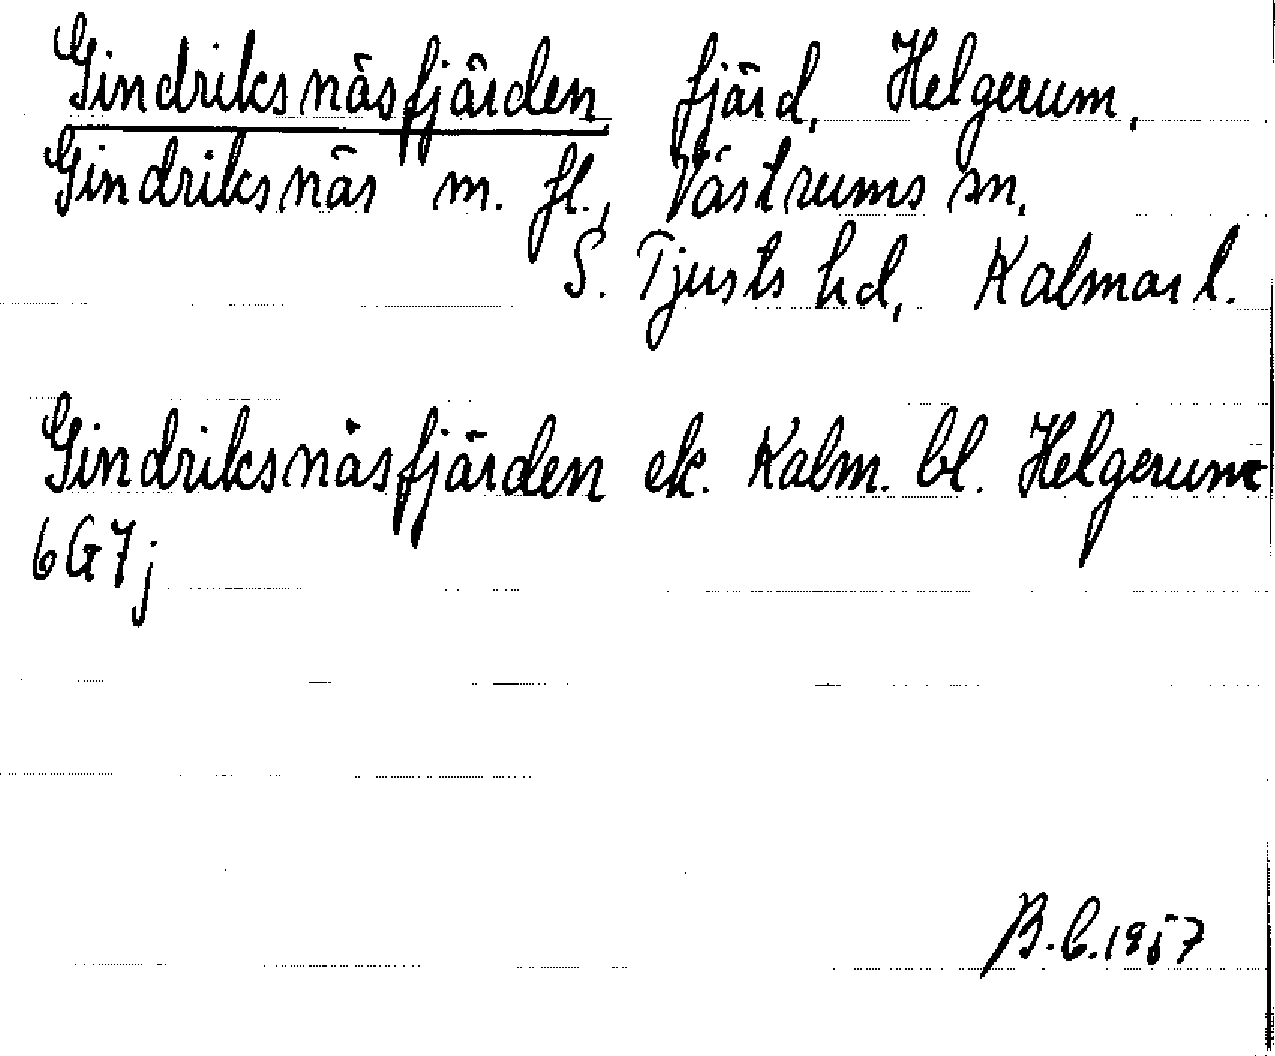 Gindriksnäsfjärden fjärd, Helgerum,
Gindriksnäs m. fl., Västrums sn,
S. Tjusts hd, Kalmar l.
Gindriksnäsfjärden ek. Kalm. bl. Helgerum
6G7j
B.C. 1957